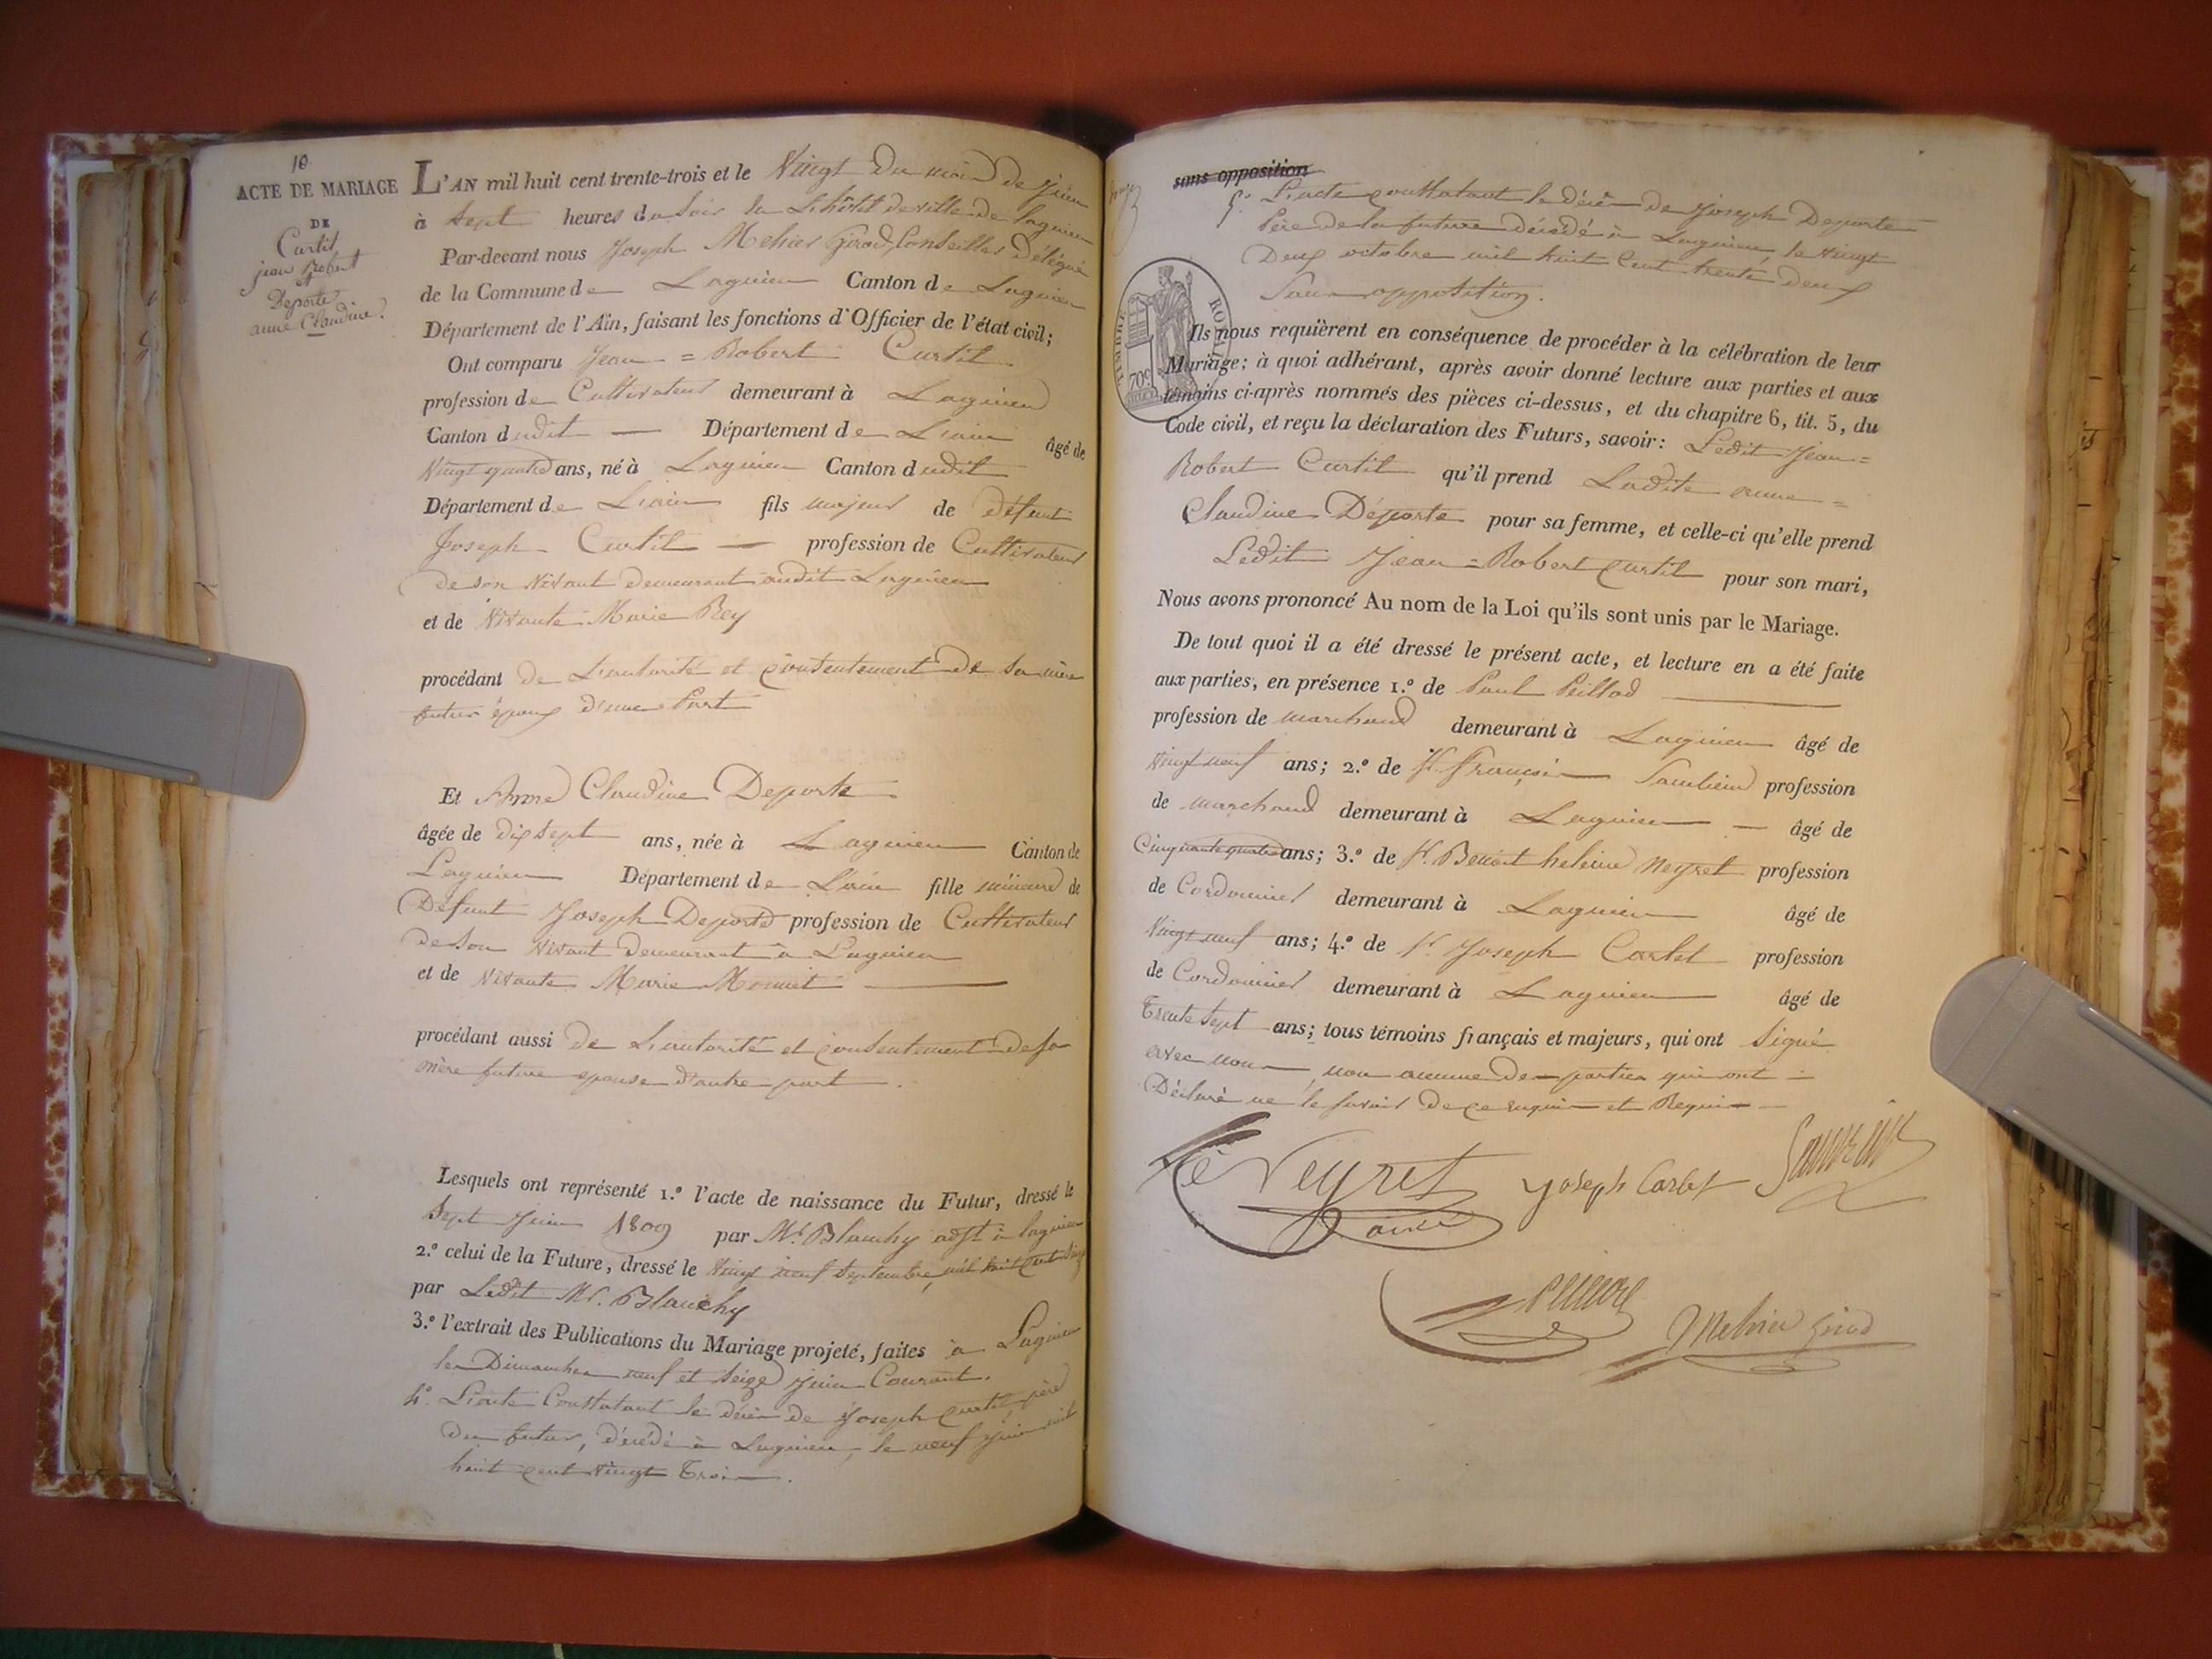 10
ACTE DE MARIAGE
DE
Curtil
jean Robert
et
Deporte
anne Claudine
L'AN mil huit cent trente-trois et le Vingt du mois de Juin
à sept heures du soir en L'hôtel de ville de Lagnieu
Par-devant nous Joseph Mehier Girod, Conseiller Délégué
de la Commune de Lagnieu Canton de Lagnieu
Département de l'Ain, faisant les fonctions d'Officier de l'état civil;
Ont comparu Jean = Robert Curtil
profession de Cultivateur demeurant à Lagnieu
Canton dudit — Département de L'ain âgé de
Vingt quatre ans, né à Lagnieu Canton dudit
Département de L'ain fils majeur de défunt
Joseph Curtil — profession de Cultivateur
de son vivant demeurant audit Lagnieu
et de vivante Marie Rey
procédant de L'autorité et consentement de sa mère
futur époux d'une Part
Et Anne Claudine Deporte
âgée de dix sept ans, née à Lagnieu Canton de
Lagnieu Département de L'ain fille mineure de
Défunt Joseph Deporte profession de Cultivateur
de son vivant demeurant à Lagnieu
et de vivante Marie Monnet
procédant aussi de L'autorité et consentement de sa
mère future epouse d'autre part.
Lesquels ont représenté 1.º l'acte de naissance du Futur, dressé le
Sept Juin 1809 par Mr. Blanchy adjt à lagnieu
2.º celui de la Future, dressé le Vingt neuf Septembre mil huit cent
par Ledit Mr. Blanchy
3.º l'extrait des Publications du Mariage projeté, faites à Lagnieu
les Dimanches neuf et seize Juin Courant.
4º. L'acte Constatant le décès de Joseph Curtil, père
du futur, décédé à Lagnieu, le neuf Juin mil
huit cent vingt Trois.
sans opposition
5º. L'acte constatant le décès de Joseph Deporte
Père de la future décédé à Lagnieu, le Vingt
Deux octobre mil huit Cent trente deux
Sans opposition.
TIMBRE ROYAL
70c
Ils nous requièrent en conséquence de procéder à la célébration de leur
Mariage; à quoi adhérant, après avoir donné lecture aux parties et aux
témoins ci-après nommés des pièces ci-dessus, et du chapitre 6, tit. 5, du
Code civil, et reçu la déclaration des Futurs, savoir: Ledit Jean =
Robert Curtil qu'il prend Ladite anne =
Claudine Déporte pour sa femme, et celle-ci qu'elle prend
Ledit Jean = Robert Curtil pour son mari,
Nous avons prononcé Au nom de la Loi qu'ils sont unis par le Mariage.
De tout quoi il a été dressé le présent acte, et lecture en a été faite
aux parties, en présence 1.º de Paul Peillod
profession de marchand demeurant à Lagnieu âgé de
Vingt neuf ans; 2.º de Sr. François profession
de marchand demeurant à Lagnieu — âgé de
Cinquante quatre ans; 3.º de Sr. Benoit Neyret profession
de Cordonnier demeurant à Lagnieu âgé de
Vingt neuf ans; 4.º de Sr. Joseph Carlet profession
de Cordonnier demeurant à Lagnieu âgé de
Trente Sept ans; tous témoins français et majeurs, qui ont signé
avec nous, non aucune des parties qui ont
Déclaré ne le savoir de ce enquis et Requis
Neyret Joseph Carlet
ainé
Mehier Girod